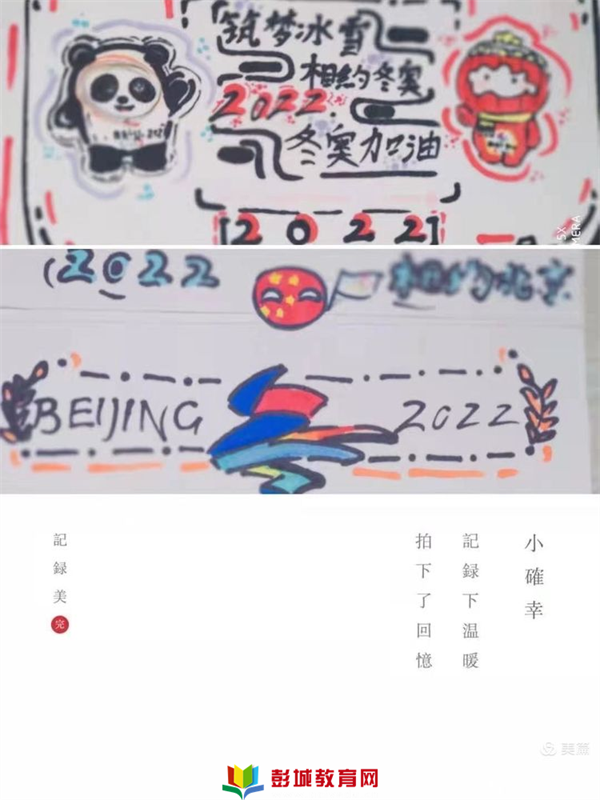 筑梦冰雪
相约冬奥
2022
冬奥加油
2022
2022
相约北京
BEIJING 2022
小確幸
記録下温暖
拍下了回憶
記録美
完
美篇
彭城教育网